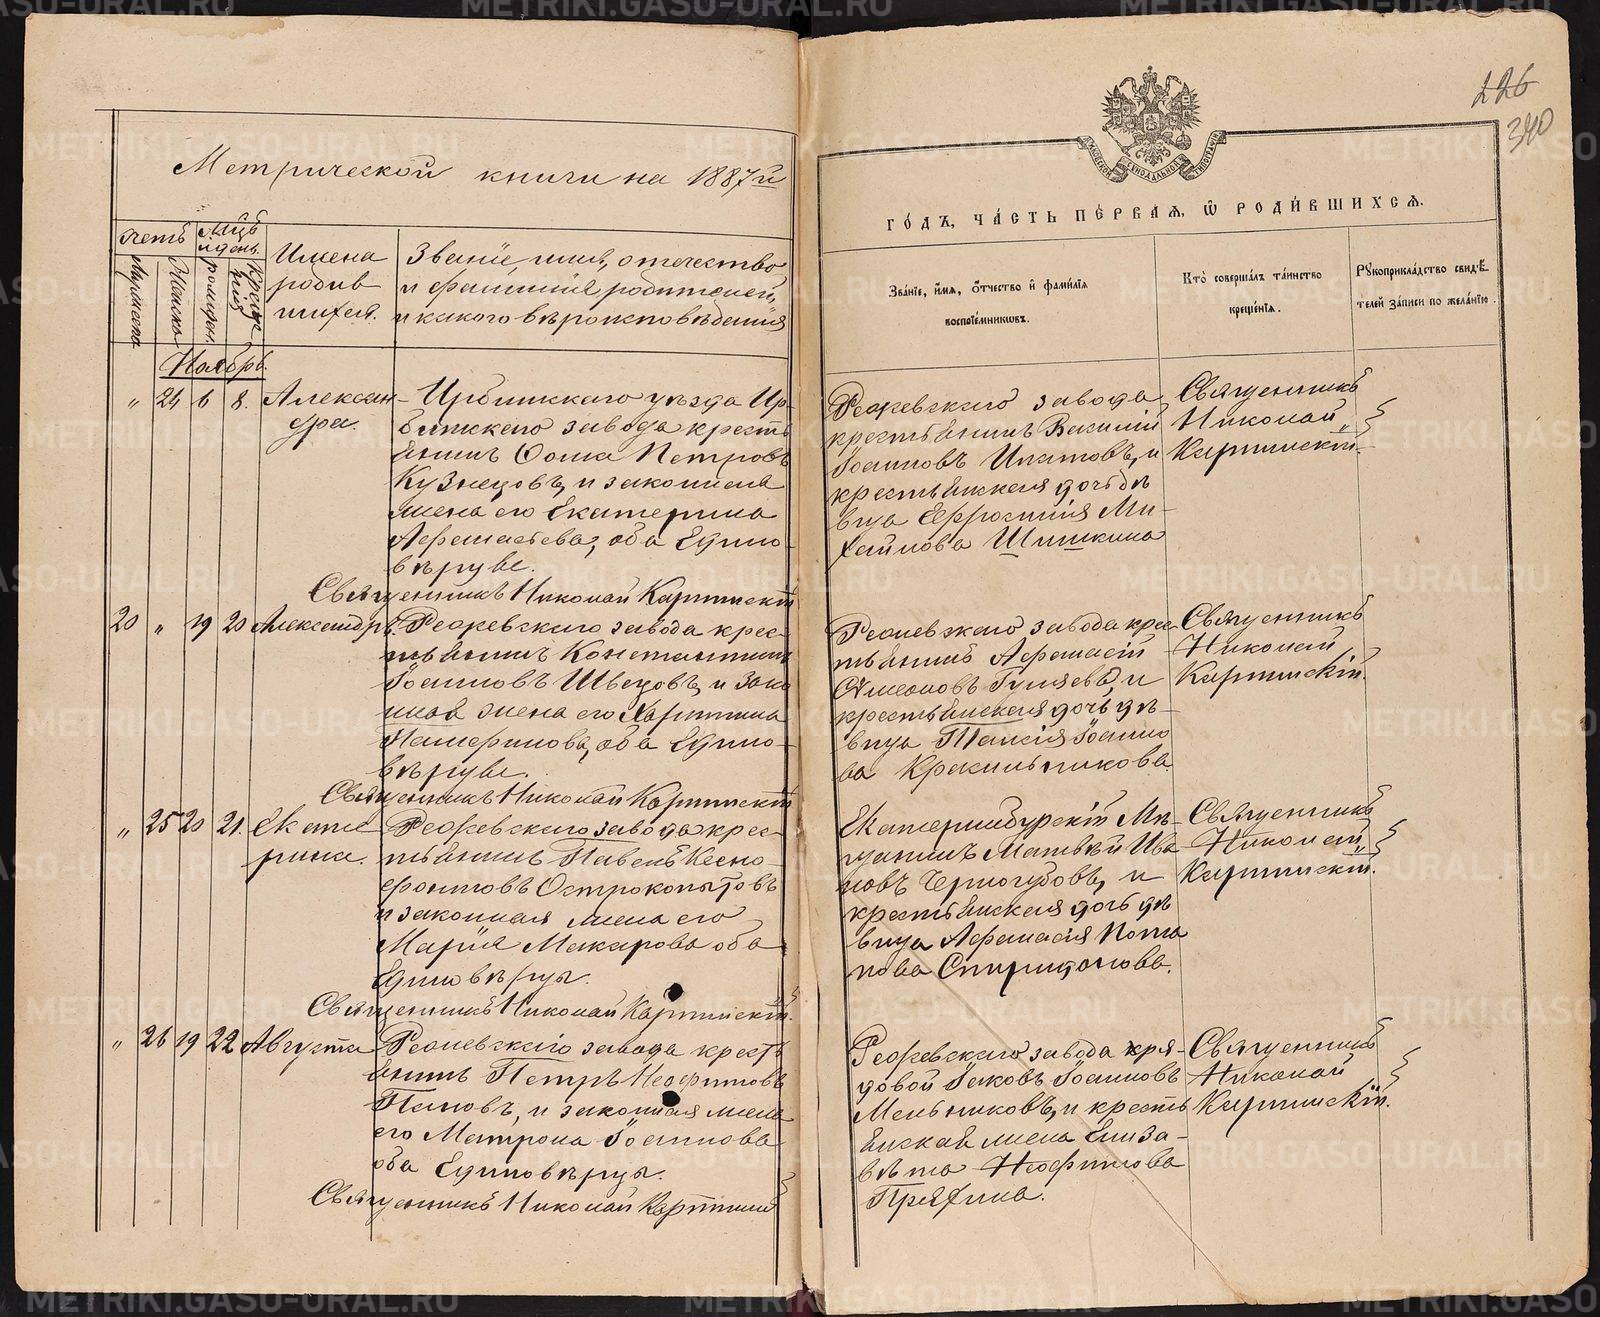 Метрической книги на 1887й
Счетъ
Мцъ и день.
Мужеска
Женска
рожден.
Крещенія
Имена родив шихся.
Званіе, имя, отечество
и фамилія родителей,
и какого вѣроисповѣданія
Ноябрь.
„ 24 6 8. Алексан-
дра.
Ирбитскаго уѣзда Ир-
битскаго завода кресть
янинъ Ѳома Петровъ
Кузнецовъ, и законная
жена его Екатерина
Афанасьева, оба Едино-
вѣрцы.
Священникъ Николай
20 „ 19 20 Александръ.
Режевскаго завода крес-
тьянинъ Константинъ
Іоанновъ Швецовъ, и Зако
нная жена его Харитина
оба Едино-
вѣрцы.
Священникъ Николай
„ 25 20 21. Екате
рина.
Режевскаго завода крес-
тьянинъ Павелъ Ксено-
фонтовъ Острокопытовъ
и законная жена его
Марія Макарова оба
Единовѣрцы.
Священникъ Николай
„ 26 19 22 Августа
Режевскаго завода кресть
янинъ Петръ Неофитовъ
Поповъ, и законная жена
его Матрона Іоаннова
оба Единовѣрцы.
Священникъ Николай
226
340
МОСКОВСКОЙ СѴНОДАЛЬНОЙ ТИПОГРАФІИ
ГО́ДЪ, ЧА́СТЬ ПЕ́РВАѦ, Ѽ РОДИ́ВШИХСѦ.
Зва́ніе, и҆́мѧ, ѻ҆́тчество и҆ фами́лїѧ
воспрїе́мникѡвъ.
Кто̀ соверша́лъ та́инство
креще́нїѧ.
Рꙋкоприкла́дство свидѣ́-
телей за́писи по жела́нїю.
Режевскаго завода
крестьянинъ Василій
Іоанновъ Ипатовъ, и
крестьянская дочь дѣ
вица Ефросинія Ми-
хайлова Шишкина
Священникъ
Николай
Режевскаго завода крес
тьянинъ Афанасій
Симеоновъ Гуляевъ, и
крестьянская дочь дѣ-
вица Таисія Іоанно
ва Красильникова.
Священникъ
Николай
Екатеринбургскій Мѣ-
щанинъ Матвѣй Ива
новъ Черногубовъ, и
крестьянская дочь дѣ
вица Афанасія Пота
пова Спиридонова.
Священникъ
Николай
Режевскаго завода ря-
довой Іаковъ Іоанновъ
Мельниковъ, и кресть
янская жена Елиза-
вѣта Неофитова
Пряхина.
Священникъ
Николай
METRIKI.GASO-URAL.RU